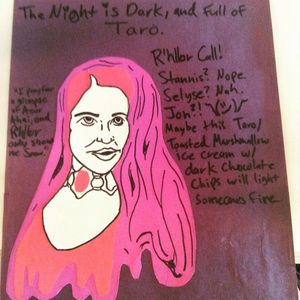 The Night is Dark, and Full of
Taro.
R'hllor Call!
Stannis? Nope.
Selyse? Nah.
Jon?! ¯\_(ツ)_/¯
Maybe this Taro/
Toasted Marshmallow
ice cream w/
dark Chocolate
Chips will light
someones fire
"I pray for
a glimpse
of Azor
Ahai, and
R'hllor
only shows
me Snow."